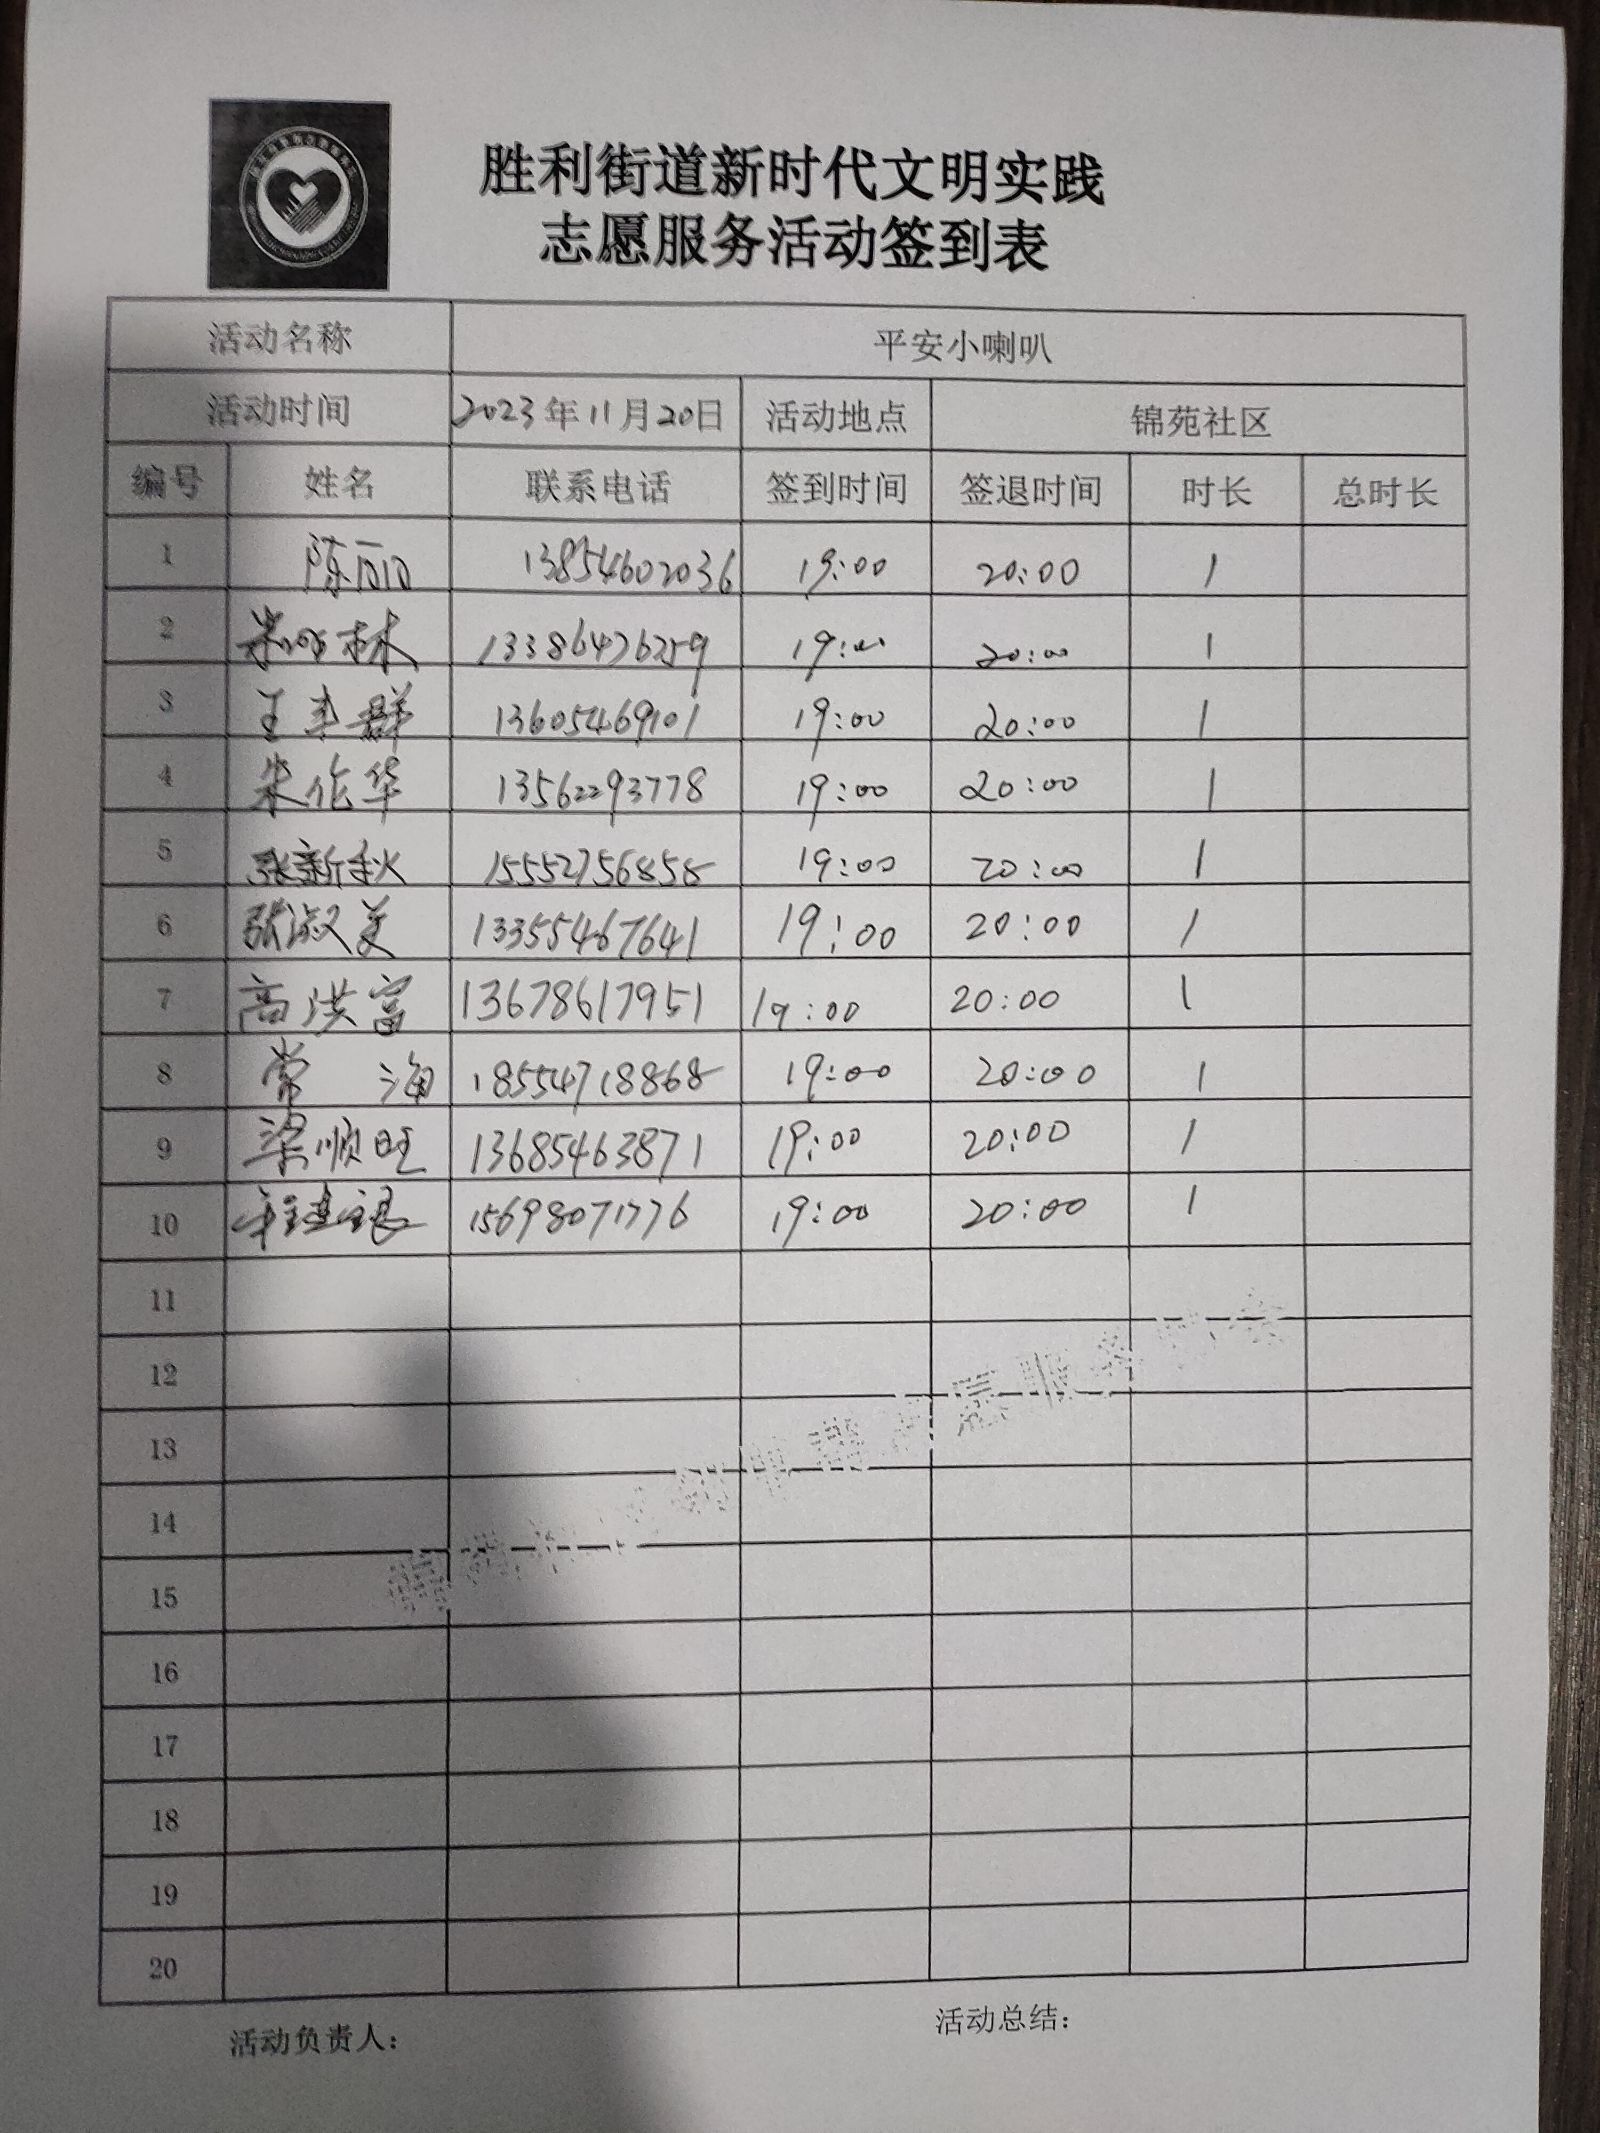 胜利街道新时代文明实践
志愿服务活动签到表
活动名称 平安小喇叭
活动时间 2023年11月20日 活动地点 锦苑社区
编号 姓名 联系电话 签到时间 签退时间 时长 总时长
1 陈丽 13854602036 19:00 20:00 1
2 林 13386476259 19:00 20:00 1
3 王丰群 13605469101 19:00 20:00 1
4 朱作华 13562293778 19:00 20:00 1
5 张新秋 15552756858 19:00 20:00 1
6 张淑美 13355467641 19:00 20:00 1
7 高洪富 13678617951 19:00 20:00 1
8 常海 18554718868 19:00 20:00 1
9 梁顺旺 13685463871 19:00 20:00 1
10 15698071776 19:00 20:00 1
11
12
13
14
15
16
17
18
19
20
活动负责人： 活动总结：